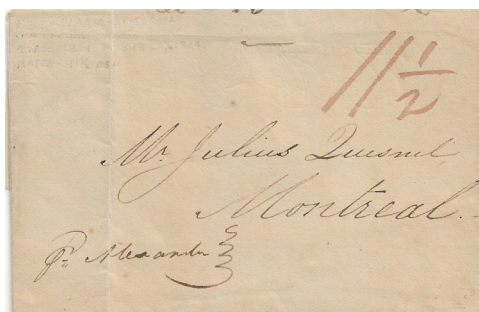 11 1/2
Mr Julius Quesnel
Montreal.
Pr Alexander